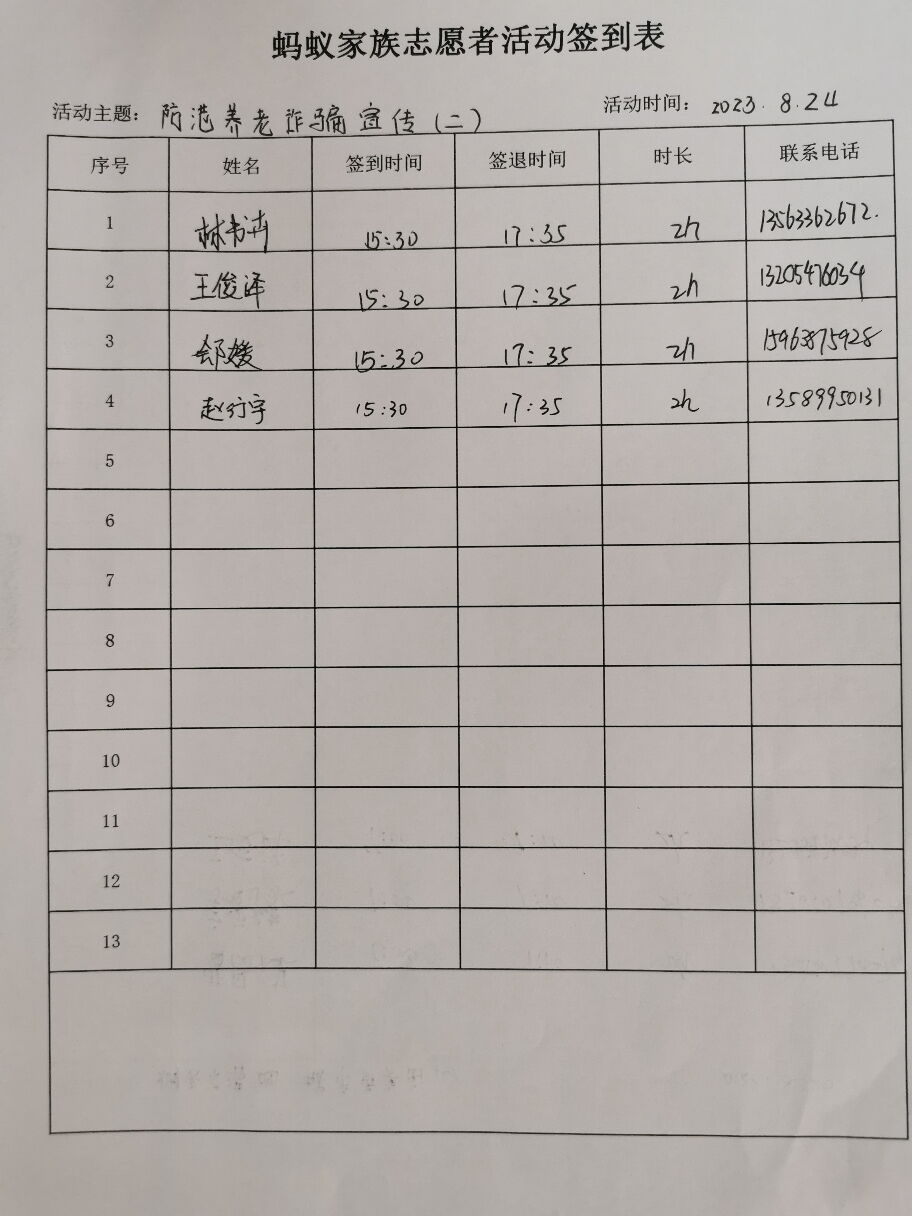 蚂蚁家族志愿者活动签到表
活动主题: 防范养老诈骗宣传(二) 活动时间: 2023.8.24
序号 姓名 签到时间 签退时间 时长 联系电话
1 林书卉 15:30 17:35 2h 13563362672.
2 王俊泽 15:30 17:35 2h 13205476034
3 郐媛 15:30 17:35 2h 15963875928
4 赵行宇 15:30 17:35 2h 13589950131
5
6
7
8
9
10
11
12
13